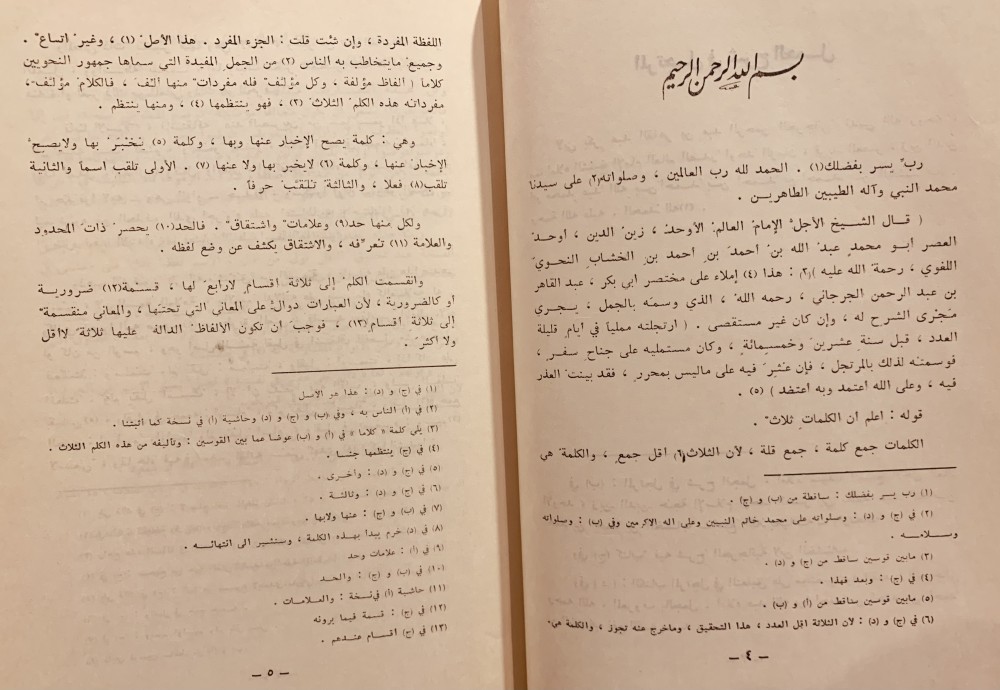 بسم الله الرحمن الرحيم
ربّ يسر بفضلك(١) . الحمد لله رب العالمين ، وصلواته(٢) على سيدنا
محمد النبي وآله الطيبين الطاهريـن .
( قـال الشـيخ الأجلّ الإمام العالم الأوحد ، زين الدين ، أوحد
العصر أبـو محمد عبد الله بن أحمد بن أحمد بن الخشاب النحـوي
اللغوي ، رحمة الله عليه )(٣) : هذا (٤) إملاء على مختصر ابي بكر ، عبد القاهر
بن عبد الرحمن الجرجاني ، رحمه الله ، الذي وسمه بالجمل ، يجـرى
مَجْرى الشـرح له ، وإن كان غير مستقصى . ( ارتجلته ممليا في ايام قليلة
العدد ، قبل سنة عشـرين وخمسـمائة ، وكان مستمليه على جناح سفـر ،
فوسمته لذلك بالمرتجل ، فإن عثـر فيه على ماليس بمحرر ، فقد بينت العذر
فيه ، وعلى الله اعتمد وبه اعتضد ) (٥) .
قوله : اعلم أن الكلمات ثلاث .
الكلمات جمع كلمة ، جمع قلة ، لأن الثلاث(٦) اقل جمع ، والكلمة هي
(١) رب يسر بفضلك : ساقطة من (ب) و (ج) .
(٢) في (ج) و (د) : وصلواته على محمد خاتم النبيين وعلى اله الاكرمين وفي (ب) : وصلواته
وسـلامـه .
(٣) مابين قوسين ساقط من (ج) و (د) .
(٤) في (ج) : وبعد فهذا .
(٥) مابين قوسين ساقط من (أ) و (ب) .
(٦) في (ج) و (د) : لأن الثلاثة اقل العدد ، هذا التحقيق ، وماخرج عنه تجوز ، والكلمة هي
– ٤ –
اللفظة المفردة ، وإن شئت قلت : الجزء المفرد . هذا الأصل (١) ، وغيره اتساع .
وجميع مايتخاطب به الناس (٢) من الجمل المفيدة التي سماها جمهور النحويين
كلاما ( الفاظ مؤلفة ، وكل مؤلف فله مفردات منها ألف ، فالكلام مؤلف ،
مفرداته هذه الكلم الثلاث (٣) ، فهو ينتظمها (٤) ، ومنها ينتظم .
وهي : كلمة يصح الإخبار عنها وبها ، وكلمة (٥) يُخْبَر بها ولايصح
الإخبار عنها ، وكلمة (٦) لايخبر بها ولا عنها (٧) . الأولى تلقب اسماً والثانية
تلقب(٨) فعلا ، والثالثة تلقب حرفاً .
ولكل منها حد(٩) وعلامات واشتقاق . فالحد(١٠) يحصر ذات المحدود
والعلامة (١١) تعرفه ، والاشتقاق يكشف عن وضع لفظه .
وانقسمت الكلم إلى ثلاثة اقسام لارابع لها ، قسـمة(١٢) ضروريـة
او كالضرورية ، لأن العبارات دوالّ على المعاني التي تحتها ، والمعاني منقسمة
إلى ثلاثة اقسام(١٣) ، فوجب ان تكون الألفاظ الدالة عليها ثلاثة لاأقل
ولا اكثر .
(١) في (ج) و (د) : هذا هو الاصل
(٢) في (أ) الناس به ، وفي (ب) و (ج) و (د) وحاشية (أ) في نسخة كما أثبتنا .
(٣) يلى كلمة « كلاما » في (أ) و (ب) عوضا عما بين القوسين : وتاليفه من هذه الكلم الثلاث .
(٤) في (ج) ينتظمها جثـا .
(٥) في (ج) و (د) : واخـرى .
(٦) في (ج) و (د) : وثالثـة .
(٧) في (ب) و (ج) : عنها ولابها .
(٨) في (د) خرم يبدأ بهـذه الكلمة ، وسنشير الى انتهائـه .
(٩) في (أ) : علامات وحد
(١٠) في (ب) و (ج) : والحـد
(١١) حاشية (أ) في نسخة : والعـلامـات .
(١٢) في (ج) : قسمة فيما يرونه
(١٣) في (ج) اقسـام عنـدهـم .
– ٥ –